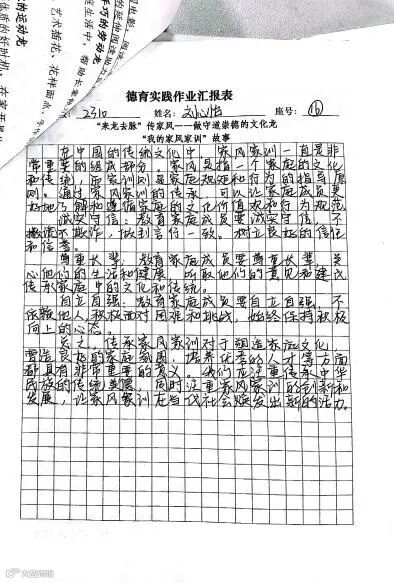 德育实践作业汇报表
2310 姓名: 座号: 16
"来龙去脉"传家风——做守道崇德的文化龙
"我的家风家训"故事
在中国的传统文化中,家风家训一直是非
常重要的组成部分,家风是指一个家庭的文化
和传统,而家训则是家庭规矩和行为的指导原
则。通过家风家训的传承,可以让家庭成员更
好地了解和遵循家庭的文化价值观和行为规范
诚实守信:教育家庭成员要诚实守信,不
撒谎不欺诈,做到言行一致。树立良好的信任
和信誉。
尊重长辈:教育家庭成员要尊重长辈,关
心他们的生活和健康,听取他们的意见和建议
传承家庭中的文化和传统。
自立自强:教育家庭成员要自立自强,不
依赖他人积极面对困难和挑战,始终保持积极
向上的心态。
总之,传承家风家训对于塑造家庭文化
营造良好的家庭氛围,培养优秀的人才等方面
都具有非常重要的意义。我们应注重传承中华
民族的传统美德,同时注重家风家训的创新和
发展,让家风家训在当代社会焕发出新的活力。